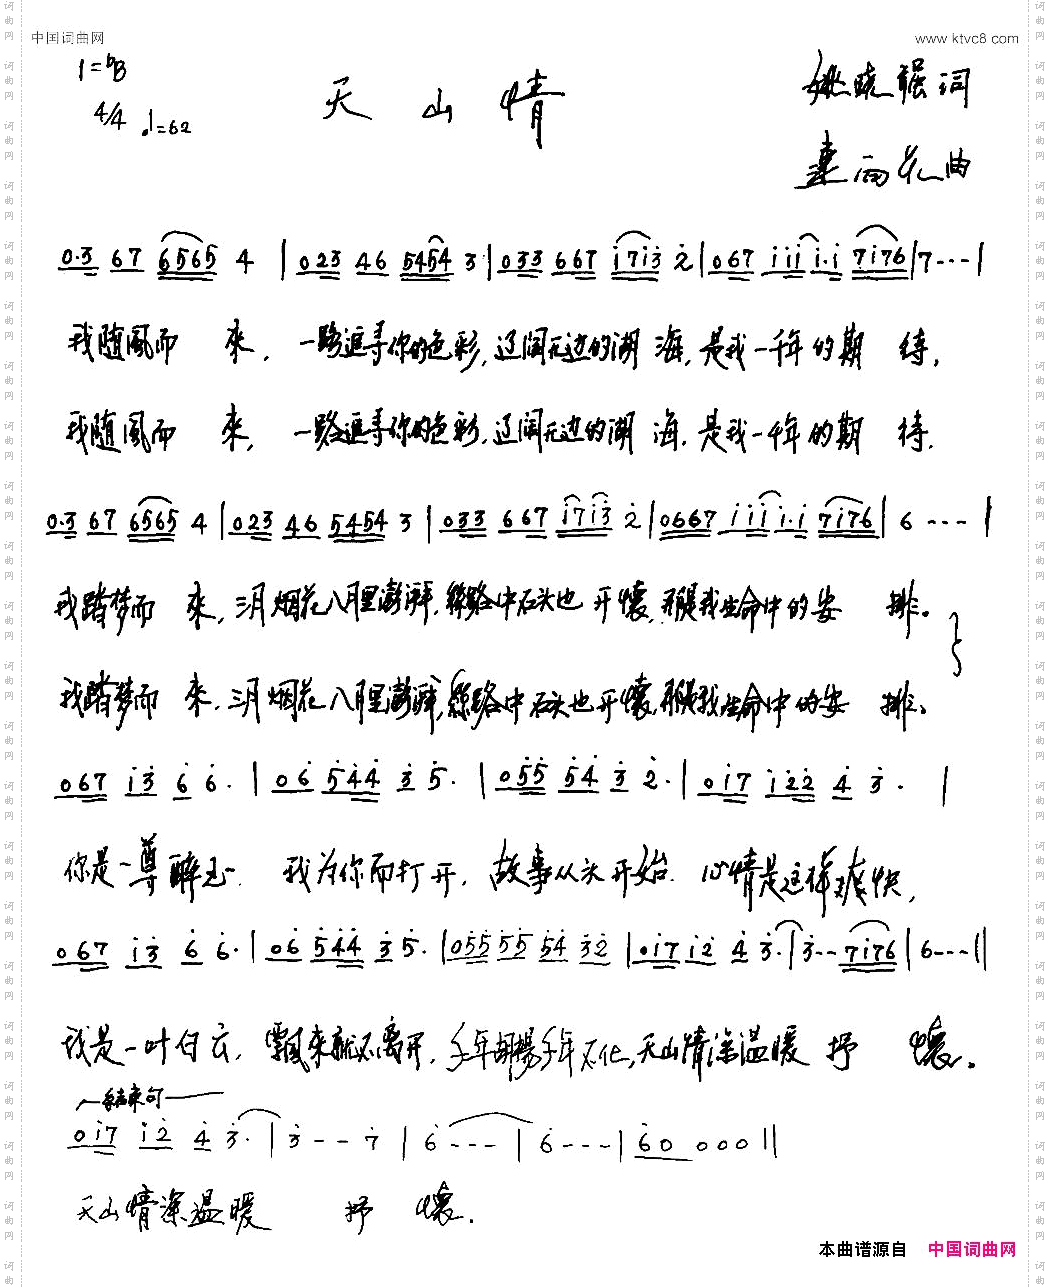 中国词曲网
www.ktvc8.com
1=bB
天山情
姚晓强词
4/4 ♩=62
雨花曲
0·3 67 6565 4 | 023 46 5454 3 | 033 667 i7i3 2 | 067 iii i·i 7i76 | 7--- |
我随風而 來，一路追寻你的色彩，辽阔无边的湖 海，是我一千年的期 待，
我随風而 來，一路追寻你的色彩，辽阔无边的湖 海，是我一千年的期 待，
0·3 67 6565 4 | 023 46 5454 3 | 033 667 i7i3 2 | 0667 iii i·i 7i76 | 6 --- |
我踏梦而 來，三月烟花八月里澎湃，絲路中石头也 开懷，那是我生命中的安 排。
我踏梦而 來，三月烟花八月里澎湃，絲路中石头也开懷，那是我生命中的安 排。
067 i3 6 6· | 06 544 3 5· | 055 54 3 2· | 0i7 i22 4 3· |
你是一尊醉玉 我为你而打开，故事从头开始 心情是这样爽快，
067 i3 6 6· | 06 544 3 5· | 055 55 54 32 | 0i7 i2 4 3· | 3-- 7i76 | 6--- ||
我是一叶白云，飄来就不离开，千年胡楊千年不化，天山情深温暖 抒 懷。
结束句
0i7 i2 4 3· | 3 -- 7 | 6 --- | 6 --- | 60 000 ||
天山情深温暖 抒 懷.
本曲谱源自 中国词曲网